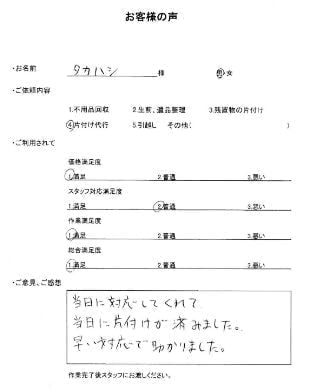 お客様の声
・お名前 タカハシ 様 男・女
・ご依頼内容
1.不用品回収 2.生前、遺品整理 3.残置物の片付け
4.片付け代行 5.引越し その他( )
・ご利用されて
価格満足度
1.満足 2.普通 3.悪い
スタッフ対応満足度
1.満足 2.普通 3.悪い
作業満足度
1.満足 2.普通 3.悪い
総合満足度
1.満足 2.普通 3.悪い
・ご意見、ご感想
当日に対応してくれて
当日に片付けが済みました。
早い対応で助かりました。
作業完了後スタッフにお渡しください。